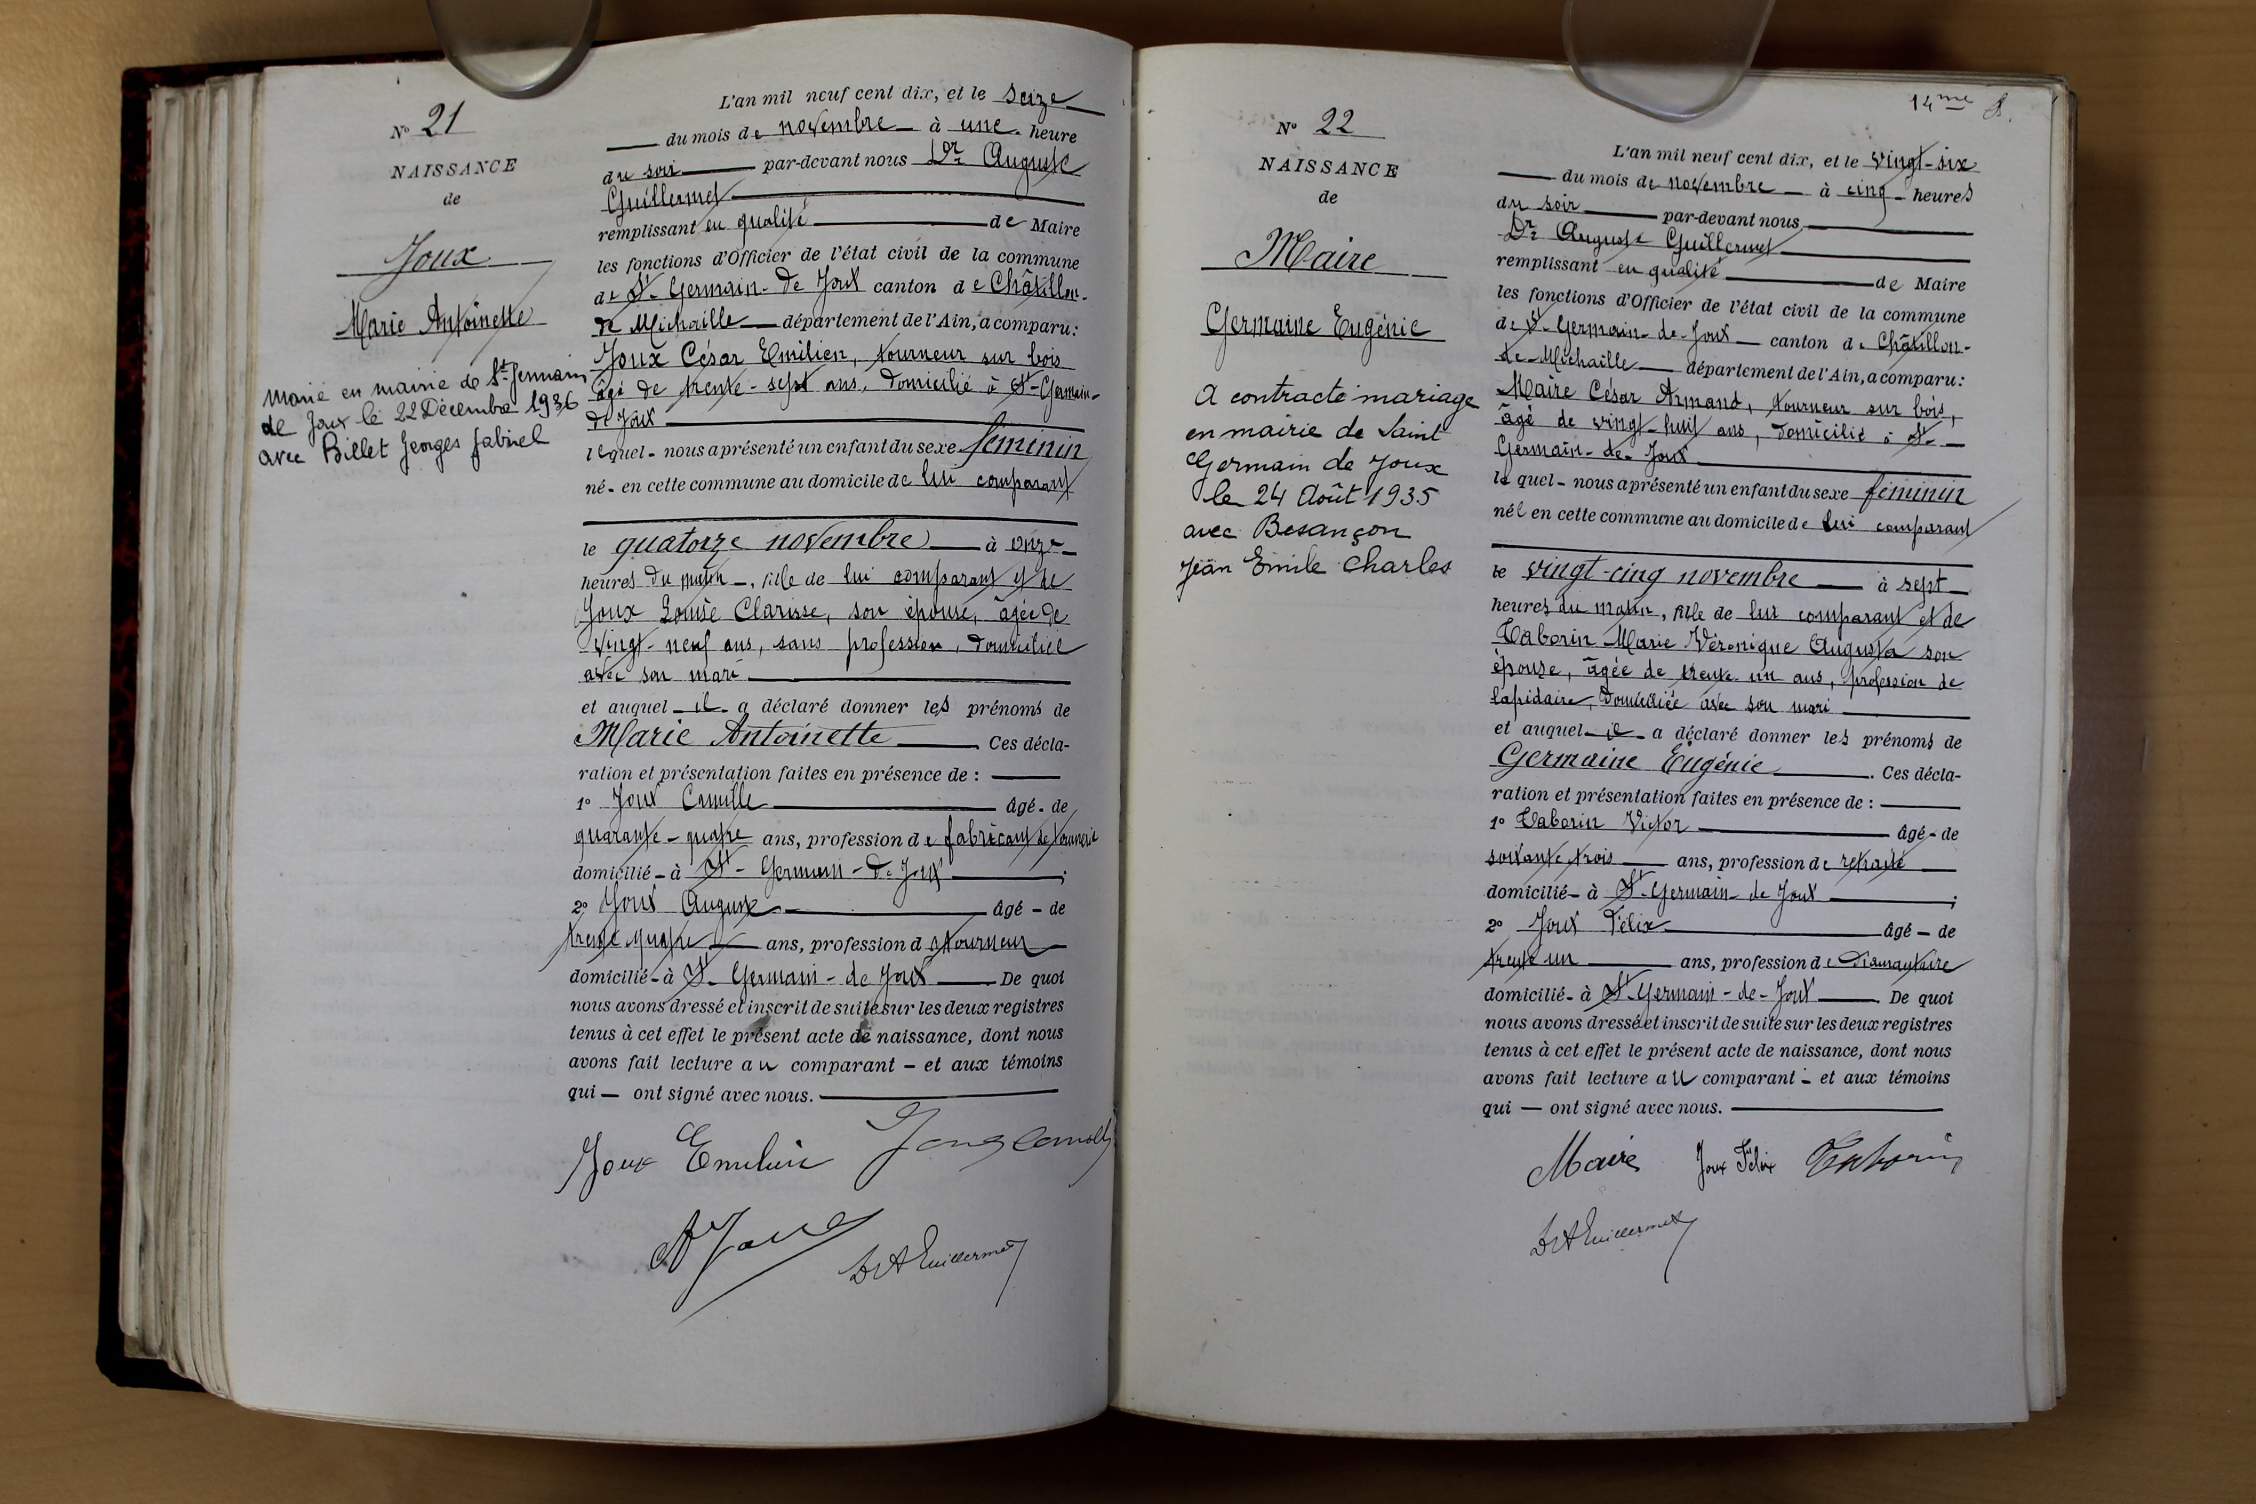 N° 21
NAISSANCE
de
Joux
Marie Antoinette
Marié en mairie de St Germain
de Joux le 22 Décembre 1936
avec Billet Georges Gabriel
L'an mil neuf cent dix, et le seize
du mois de novembre à une heure
du soir par-devant nous Dr Auguste
Guillermet
remplissant en qualité de Maire
les fonctions d'Officier de l'état civil de la commune
de St-Germain-de Joux canton de Châtillon-
de Michaille département de l'Ain, a comparu:
Joux César Emilien, tourneur sur bois
âgé de trente-sept ans, domicilié à St-Germain-
de Joux
lequel nous a présenté un enfant du sexe féminin
né en cette commune au domicile de lui comparant
le quatorze novembre à onze
heures du matin, fille de lui comparant et de
Joux Louise Clarisse, son épouse, âgée de
vingt-neuf ans, sans profession, domiciliée
avec son mari
et auquel il a déclaré donner les prénoms de
Marie Antoinette Ces décla-
ration et présentation faites en présence de :
1° Joux Camille âgé de
quarante-quatre ans, profession de fabricant de tournerie
domicilié à St-Germain-de Joux ;
2° Joux Auguste âgé de
trente quatre ans, profession de tourneur
domicilié à St-Germain-de Joux De quoi
nous avons dressé et inscrit de suite sur les deux registres
tenus à cet effet le présent acte de naissance, dont nous
avons fait lecture au comparant et aux témoins
qui ont signé avec nous.
Joux Emilien Joux Camille
A Joux
Dr A Guillermet
14me
N° 22
NAISSANCE
de
Maire
Germaine Eugénie
A contracté mariage
en mairie de Saint
Germain de Joux
le 24 Août 1935
avec Besançon
Jean Emile Charles
L'an mil neuf cent dix, et le vingt-six
du mois de novembre à cinq heures
du soir par-devant nous
Dr Auguste Guillermet
remplissant en qualité de Maire
les fonctions d'Officier de l'état civil de la commune
de St-Germain-de-Joux canton de Châtillon-
de-Michaille département de l'Ain, a comparu:
Maire César Armand, tourneur sur bois,
âgé de vingt-huit ans, domicilié à St-
Germain-de-Joux
lequel nous a présenté un enfant du sexe féminin
né en cette commune au domicile de lui comparant
le vingt-cinq novembre à sept
heures du matin, fille de lui comparant et de
Taborin Marie Véronique Augusta son
épouse, âgée de trente-un ans, profession de
lapidaire, domiciliée avec son mari
et auquel il a déclaré donner les prénoms de
Germaine Eugénie . Ces décla-
ration et présentation faites en présence de :
1° Taborin Victor âgé de
soixante trois ans, profession de retraité
domicilié à St-Germain-de Joux ;
2° Joux Félix âgé de
trente un ans, profession de Diamantaire
domicilié à St-Germain-de-Joux . De quoi
nous avons dressé et inscrit de suite sur les deux registres
tenus à cet effet le présent acte de naissance, dont nous
avons fait lecture au comparant et aux témoins
qui ont signé avec nous.
Maire Joux Félix Taborin
Dr A Guillermet